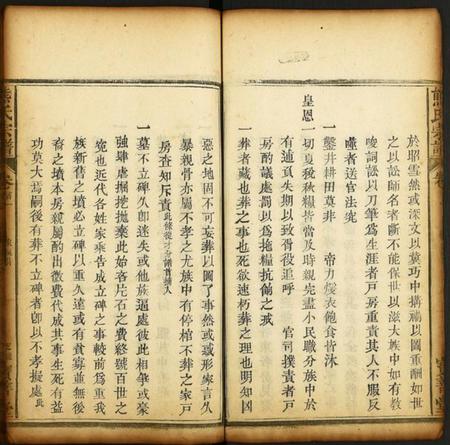 熊氏宗譜
卷
於昭雪然或深文以萋巧中搆禍以圖重酬如世
之以訟師名者斷不能保世以滋大族中如有教
唆詞訟以刀筆為生涯者戸房重責其人不服反
嚷者送官法究
一鑿井耕田莫非 帝力僾衣飽食皆沐
皇恩一切夏稅秋糧皆當及時親完盡小民職分族中於
有逋負失期以致胥役追呼 官司撲責者戸
房酌議處罰以為拖糧抗餉之戒
一葬者藏也葬之事也死欲速朽葬之理也明知凶
惡之地固不可妄葬以圖了事然或惑形家言久
暴親骨亦屬不孝之尤族中有停棺不葬之家戸
房查知斥責
一墓不立碑久卽迷失或他族逼處彼此相爭或豪
強肆虐掘挖拋棄此始吝片石之費終貽百世之
寃也近代各姓家乘告成立碑之事較前為重我
族新舊之墳必立碑以重久遠或有貧寡並無後
裔之墳本房親屬酌出徵費代成其事生死有益
功莫大焉嗣後有葬不立碑者卽以不孝擬處
熊氏宗譜
卷首